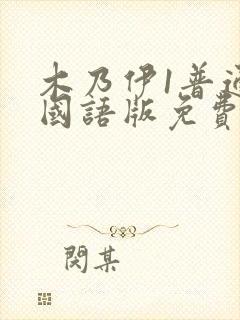 木乃伊1普通
國語版免費
閔某